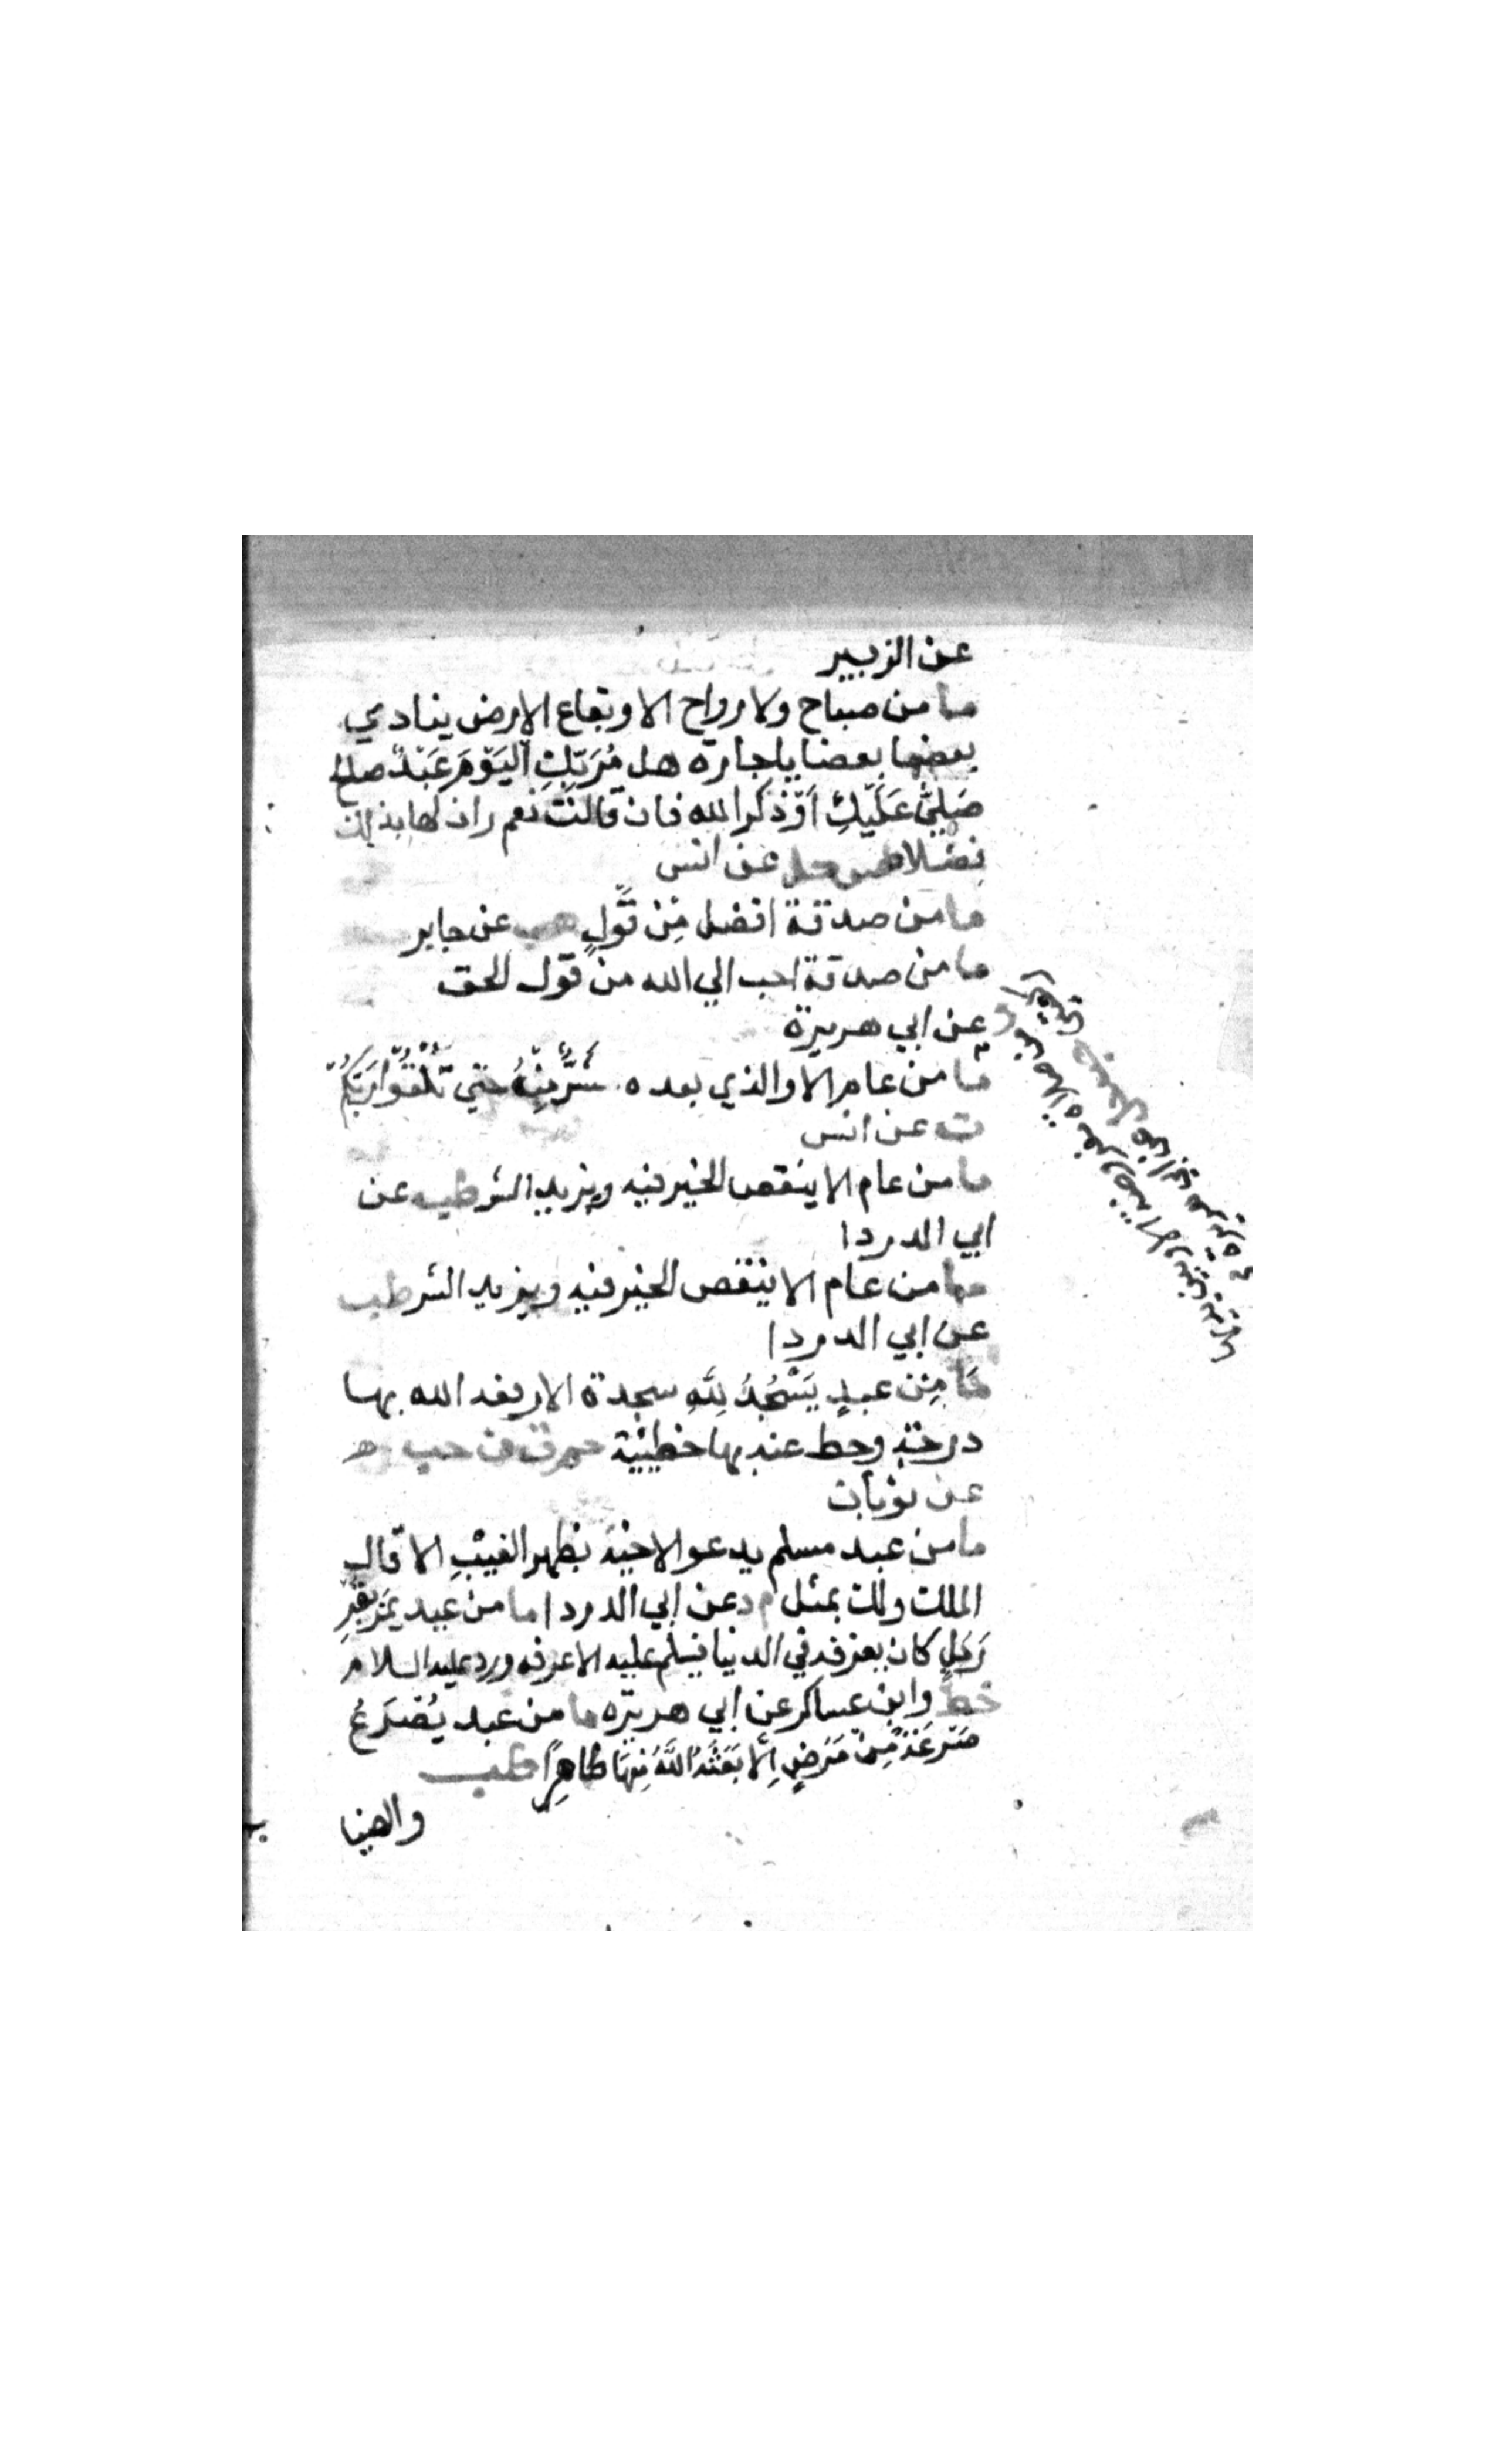 عن الزبير
ما من صباح ولا رواح الا وبقاع الارض ينادي
بعضها بعضا ياجارة هل مُرَبّكِ اليَوْمَ عَبْدٌ صالح
صَلىَّ عَلَيْكِ اَوْ ذكَرا لله فان قالتْ نعم رات لها بذلك
فضلا طس حل عن انس
ما من صدقة افضل مِنْ قَوْلٍ هب عن جابر
ما من صدقة احب الي الله من قول الحق
عن ابي هريرة
مَا من عام الا والذي بعده شَرٌّ مِنْهُ حتي تَلْقَوْا رَبَّكُمْ
ت عن انس
ما من عام الا ينقص الخير فيه ويزيد الشر طب عن
ابي الدردا
ما من عام الا ينقص الخير فيه ويزيد الشر طب
عن ابي الدردا
مَا مِن عبدٍ يَسْجُدُ لِلّهِ سجدة الا رفعه الله بها
درجة وحط عنه بها خطيئة حم ت ن حب
عن ثوبان
ما من عبد مسلم يدعوا لاخيه بظهر الغيْبِ الا قال
الملك ولك بمثل م د عن ابي الدردا ما من عبد يَمُرّ بقبر
رَجُلٍ كان يعرفه في الدنيا فيسلم عليه الا عرفه ورد عليه السلام
خط وابن عساكر عن ابي هريرة ما من عبد يُصْرَعُ
صَرْعَةً مِنْ مَرَضٍ اِلّا بَعَثَهُ اللّهُ مِنْهَا طَاهِرًا طب
والضيا